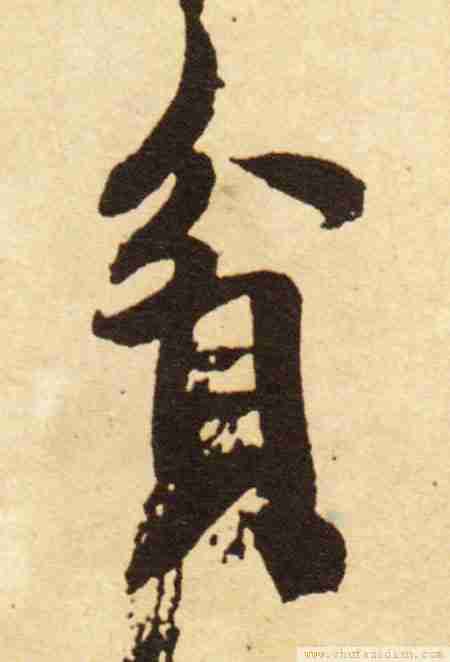 貧
www.shufazidian.com